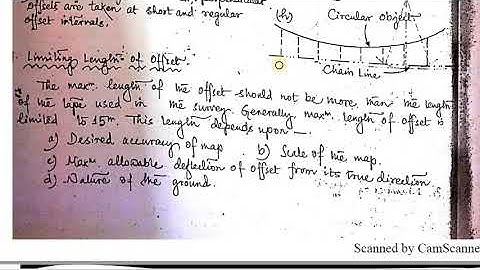 offsets are taken at short and regular
offset intervals.
(h)
Circular object
Chain Line
Limiting Length of Offset.
The maxm. length of the offset should not be more than the length
of the tape used in the survey. Generally, maxm. length of offset is
limited to 15m. This length depends upon —
a) Desired accuracy of map
b) Scale of the map.
c) Maxm. allowable deflection of offset from its true direction.
d) Nature of the ground.
Scanned by CamScanne